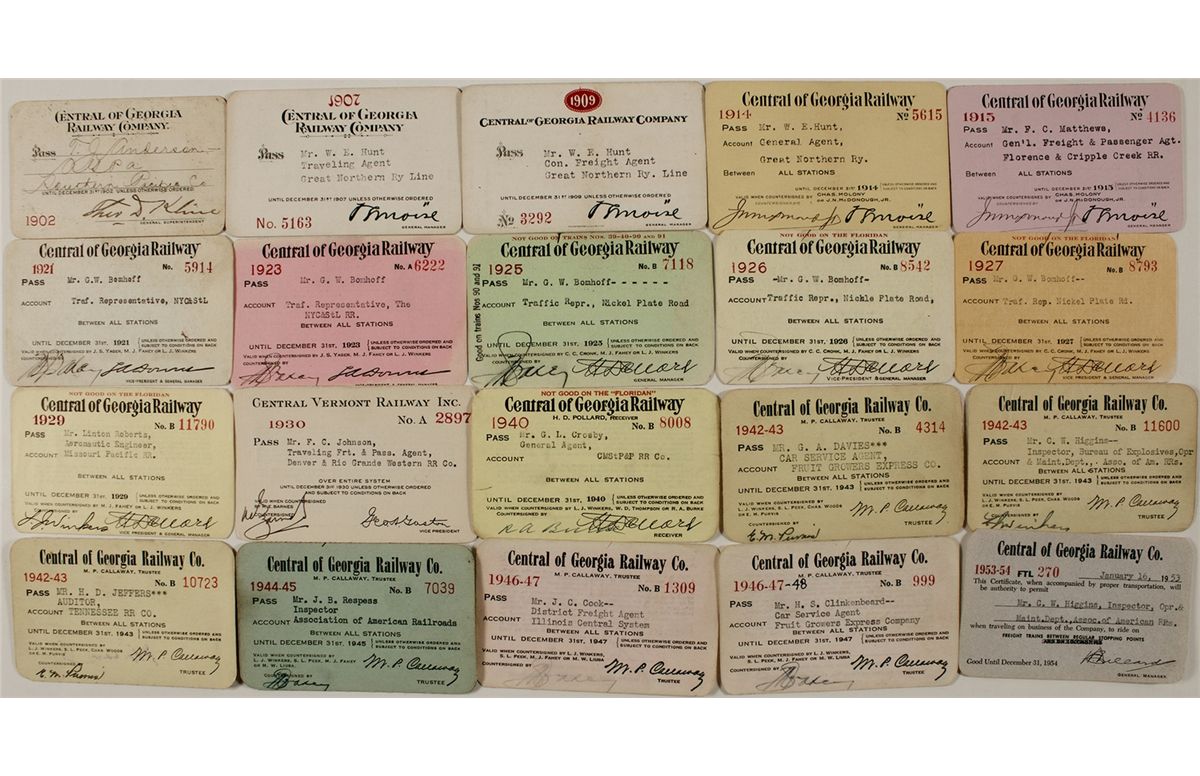 CENTRAL OF GEORGIA
RAILWAY COMPANY.
Pass
UNTIL DECEMBER 31ST 1902 UNLESS OTHERWISE ORDERED
1902
GENERAL SUPERINTENDENT
1907
CENTRAL OF GEORGIA
RAILWAY COMPANY.
Pass Mr. W. E. Hunt
Traveling Agent
Great Northern Ry Line
UNTIL DECEMBER 31ST 1907 UNLESS OTHERWISE ORDERED
No. 5163
GENERAL MANAGER
1909
CENTRAL OF GEORGIA RAILWAY COMPANY
Pass Mr. W. E. Hunt
Con. Freight Agent
Great Northern Ry. Line
UNTIL DECEMBER 31ST 1909 UNLESS OTHERWISE ORDERED
No 3292
GENERAL MANAGER
Central of Georgia Railway
1914 No 5615
PASS Mr. W. E. Hunt,
General Agent,
Great Northern Ry.
Between ALL STATIONS
UNTIL DECEMBER 31ST 1914 UNLESS OTHERWISE ORDERED AND SUBJECT TO CONDITIONS ON BACK
VALID WHEN COUNTERSIGNED BY CHAS. MOLONY OR J.N. McDONOUGH, JR.
GENERAL MANAGER
Central of Georgia Railway
1915 No 4136
PASS Mr. F. C. Matthews,
Account Gen'l. Freight & Passenger Agt.
Florence & Cripple Creek RR.
Between ALL STATIONS
UNTIL DECEMBER 31ST 1915 UNLESS OTHERWISE ORDERED AND SUBJECT TO CONDITIONS ON BACK
VALID WHEN COUNTERSIGNED BY CHAS. MOLONY OR J.N. McDONOUGH, JR.
GENERAL MANAGER
Central of Georgia Railway
1921 No. 5914
PASS Mr. G.W. Bomhoff
ACCOUNT Traf. Representative, NYC&StL
BETWEEN ALL STATIONS
UNTIL DECEMBER 31ST. 1921 UNLESS OTHERWISE ORDERED AND SUBJECT TO CONDITIONS ON BACK
VALID WHEN COUNTERSIGNED BY J. S. YADER, M. J. FAHEY OR L. J. WINKERS
VICE-PRESIDENT & GENERAL MANAGER
Central of Georgia Railway
1923 No. A 6222
PASS Mr. G. W. Bomhoff
ACCOUNT Traf. Representative, The
NYC&StL RR.
BETWEEN ALL STATIONS
UNTIL DECEMBER 31ST. 1923 UNLESS OTHERWISE ORDERED AND SUBJECT TO CONDITIONS ON BACK
VALID WHEN COUNTERSIGNED BY J. S. YADER, M. J. FAHEY OR L. J. WINKERS
VICE-PRESIDENT & GENERAL MANAGER
NOT GOOD ON TRAINS NOS. 39-40-90 AND 91
Central of Georgia Railway
1925 No. B 7118
Good on trains Nos 90 and 91
PASS Mr. G. W. Bomhoff- - - - - -
ACCOUNT Traffic Repr., Nickel Plate Road
BETWEEN ALL STATIONS
UNTIL DECEMBER 31ST. 1925 UNLESS OTHERWISE ORDERED AND SUBJECT TO CONDITIONS ON BACK
VALID WHEN COUNTERSIGNED BY C. C. CROHN, M. J. FAHEY OR L. J. WINKERS
GENERAL MANAGER
NOT GOOD ON THE FLORIDAN
Central of Georgia Railway
1926 No. B 8542
PASS -Mr. G. W. Bomhoff-
ACCOUNT Traffic Repr., Nickle Plate Road,
BETWEEN ALL STATIONS
UNTIL DECEMBER 31ST. 1926 UNLESS OTHERWISE ORDERED AND SUBJECT TO CONDITIONS ON BACK
VALID WHEN COUNTERSIGNED BY C. C. CROHN, M. J. FAHEY OR L. J. WINKERS
VICE-PRESIDENT & GENERAL MANAGER
NOT GOOD ON THE FLORIDAN
Central of Georgia Railway
1927 No. B 8793
PASS Mr. G. W. Bomhoff--
ACCOUNT Traf. Rep. Nickel Plate Rd.
BETWEEN ALL STATIONS
UNTIL DECEMBER 31ST. 1927 UNLESS OTHERWISE ORDERED AND SUBJECT TO CONDITIONS ON BACK
VALID WHEN COUNTERSIGNED BY C. C. CROHN, M. J. FAHEY OR L. J. WINKERS
VICE PRESIDENT & GENERAL MANAGER
NOT GOOD ON THE FLORIDAN
Central of Georgia Railway
1929 No. B 11790
PASS Mr. Linton Roberts,
Aeronautic Engineer,
ACCOUNT Missouri Pacific RR.
BETWEEN ALL STATIONS
UNTIL DECEMBER 31ST. 1929 UNLESS OTHERWISE ORDERED AND SUBJECT TO CONDITIONS ON BACK
VALID WHEN COUNTERSIGNED BY M. J. FAHEY OR L. J. WINKERS
VICE PRESIDENT & GENERAL MANAGER
CENTRAL VERMONT RAILWAY INC.
1930 No. A 2897
PASS Mr. F. C. Johnson,
Traveling Frt. & Pass. Agent,
Denver & Rio Grande Western RR Co.
OVER ENTIRE SYSTEM
UNTIL DECEMBER 31ST 1930 UNLESS OTHERWISE ORDERED
AND SUBJECT TO CONDITIONS ON BACK
VALID WHEN COUNTERSIGNED
VICE PRESIDENT
NOT GOOD ON THE "FLORIDAN"
Central of Georgia Railway
H. D. POLLARD, RECEIVER
1940 No. B 8008
PASS Mr. G. L. Crosby,
General Agent,
ACCOUNT CMStP&P RR Co.
BETWEEN ALL STATIONS
UNTIL DECEMBER 31ST. 1940 UNLESS OTHERWISE ORDERED AND SUBJECT TO CONDITIONS ON BACK
VALID WHEN COUNTERSIGNED BY L. J. WINKERS, W. D. THOMPSON OR R. A. BURKE
COUNTERSIGNED BY
RECEIVER
Central of Georgia Railway Co.
M. P. CALLAWAY, TRUSTEE
1942-43 No. B 4314
PASS MR. G. A. DAVIES***
CAR SERVICE AGENT,
ACCOUNT FRUIT GROWERS EXPRESS CO.
BETWEEN ALL STATIONS
UNTIL DECEMBER 31ST. 1943 UNLESS OTHERWISE ORDERED AND SUBJECT TO CONDITIONS ON BACK
VALID WHEN COUNTERSIGNED BY L. J. WINKERS, S. L. PEEK, CHAS. WOODS OR E. M. PURVIS
M. P. Callaway
COUNTERSIGNED
E. M. Purvis
TRUSTEE
Central of Georgia Railway Co.
M. P. CALLAWAY, TRUSTEE
1942-43 No. B 11600
PASS Mr. C. W. Higgins--
Inspector, Bureau of Explosives, Opr
ACCOUNT & Maint.Dept., Asso. of Am. RRs.
BETWEEN ALL STATIONS
UNTIL DECEMBER 31ST. 1943 UNLESS OTHERWISE ORDERED AND SUBJECT TO CONDITIONS ON BACK
VALID WHEN COUNTERSIGNED BY L. J. WINKERS, S. L. PEEK, CHAS. WOODS OR E. M. PURVIS
M. P. Callaway
COUNTERSIGNED
TRUSTEE
Central of Georgia Railway Co.
M. P. CALLAWAY, TRUSTEE
1942-43 No. B 10723
PASS MR. H. D. JEFFERS***
AUDITOR,
ACCOUNT TENNESSEE RR CO.
BETWEEN ALL STATIONS
UNTIL DECEMBER 31ST. 1943 UNLESS OTHERWISE ORDERED AND SUBJECT TO CONDITIONS ON BACK
VALID WHEN COUNTERSIGNED BY L. J. WINKERS, S. L. PEEK, CHAS. WOODS OR E. M. PURVIS
M. P. Callaway
COUNTERSIGNED
E. M. Purvis
TRUSTEE
Central of Georgia Railway Co.
M. P. CALLAWAY, TRUSTEE
1944-45 No. B 7039
PASS Mr. J. B. Respess
Inspector
ACCOUNT Association of American Railroads
BETWEEN ALL STATIONS
UNTIL DECEMBER 31ST. 1945 UNLESS OTHERWISE ORDERED AND SUBJECT TO CONDITIONS ON BACK
VALID WHEN COUNTERSIGNED BY L. J. WINKERS, S. L. PEEK, M. J. FAHEY OR M. W. LIUBA
M. P. Callaway
COUNTERSIGNED BY
TRUSTEE
Central of Georgia Railway Co.
M. P. CALLAWAY, TRUSTEE
1946-47 No. B 1309
PASS Mr. J. C. Cook--
District Freight Agent
ACCOUNT Illinois Central System
BETWEEN ALL STATIONS
UNTIL DECEMBER 31ST. 1947 UNLESS OTHERWISE ORDERED AND SUBJECT TO CONDITIONS ON BACK
VALID WHEN COUNTERSIGNED BY L. J. WINKERS, S. L. PEEK, M. J. FAHEY OR M. W. LIUBA
M. P. Callaway
COUNTERSIGNED BY
TRUSTEE
Central of Georgia Railway Co.
M. P. CALLAWAY, TRUSTEE
1946-47-48 No. B 999
PASS Mr. H. S. Clinkenbeard--
Car Service Agent
ACCOUNT Fruit Growers Express Company
BETWEEN ALL STATIONS
UNTIL DECEMBER 31ST. 1947 UNLESS OTHERWISE ORDERED AND SUBJECT TO CONDITIONS ON BACK
VALID WHEN COUNTERSIGNED BY L. J. WINKERS, S. L. PEEK, M. J. FAHEY OR M. W. LIUBA
M. P. Callaway
COUNTERSIGNED BY
TRUSTEE
Central of Georgia Railway Co.
1953-54 FTL 270 January 16, 1953
This Certificate, when accompanied by proper transportation, will
be authority to permit
Mr. C. W. Higgins, Inspector, Opr.&
Maint.Dept., Assoc. of American RRs.
when traveling on business of the Company, to ride on
FREIGHT TRAINS BETWEEN REGULAR STOPPING POINTS
Good Until December 31, 1954
GENERAL MANAGER